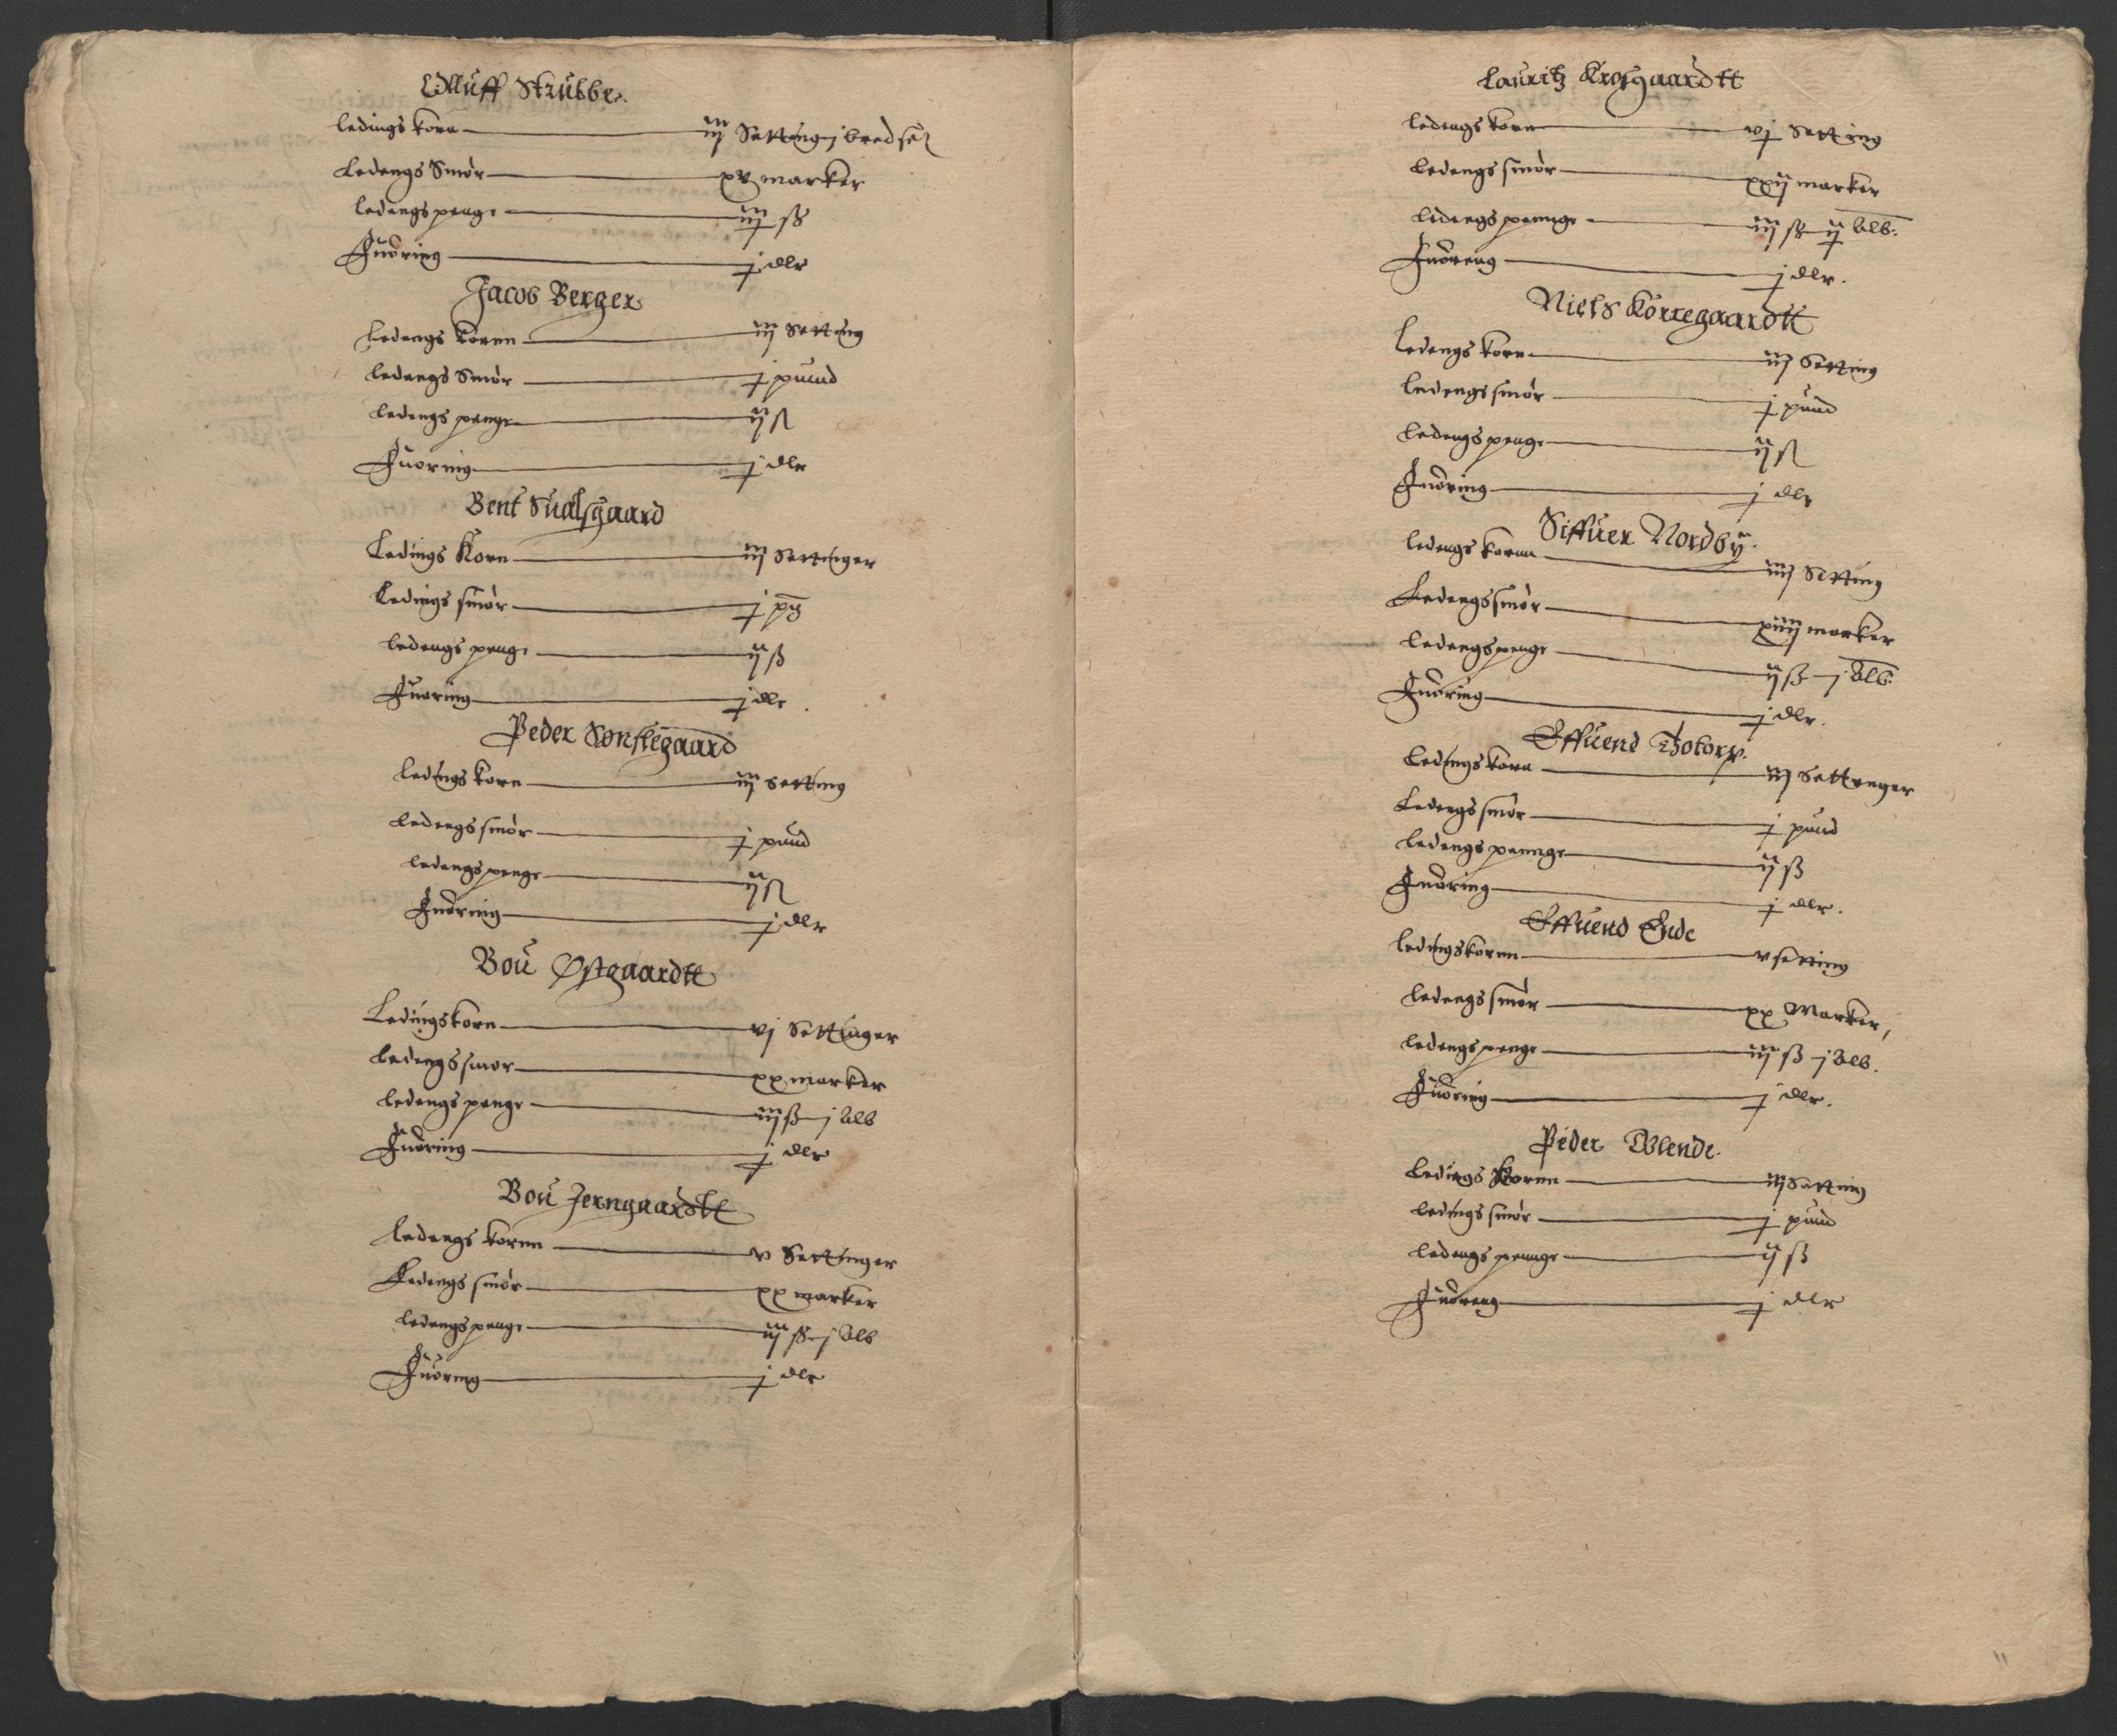 Olluff Strubbe.
ledings korn iiij Setting j bredsel
Ledengs Smør xv marker
ledengs penge iiij sß
Fuoring j dlr
Jacob Berger
ledengs kornn iij Setting
ledengs Smør j puund
ledengs penge ij ß
Fuoring j dlr
Bent Sualsgaard
Ledings Korn iij Settinger
Ledings smør j pd
ledengs penge ij ß
Fuoring j dlr
Peder Sønstegaard
ledings korn iij Setting
ledengs smør j puud
ledengs penge ij ß
Fuoring j dlr
Bou Østgaardtt
Ledings korn vj Settinger
ledengs smør xx marker
ledengs penge iij ß j alb
Fuoring j dlr
Bou Jerngaardtt
ledengs kornn v Settinger
Ledengs smør xx marker
ledengs penge iij ß j alb
Fuoring j dlr
Lauritz Krosgaardtt
ledengs korn vj Setting
ledengs smør xxij marker
ledengs pennge iij ß ij alb:
Fuoreng j dlr.
Niels Korregaardtt
ledengs korn iij Setting
ledengs smør j puud
ledengs penge ij ß
Fuoring j dlr
Siffuer Nordbÿ.
ledengs kornn iiij Setting
Ledengs smør xiiij marker
ledengs penge ij ß j alb
Fuoring j dlr.
Effuend Totorp.
ledings korn iij Settenger
Ledengs smør j puud
ledengs pennge ij ß
Fuoring j dlr.
Effuend Ende
ledings kornn v setting
ledengs smør xx Marker,
ledengs penge iij ß j alb.
Fuoring j dlr.
Peder Blende.
ledings kornn iij Setting
ledings smør j puud
ledengs pennge ij ß
Fuoreng j dlr